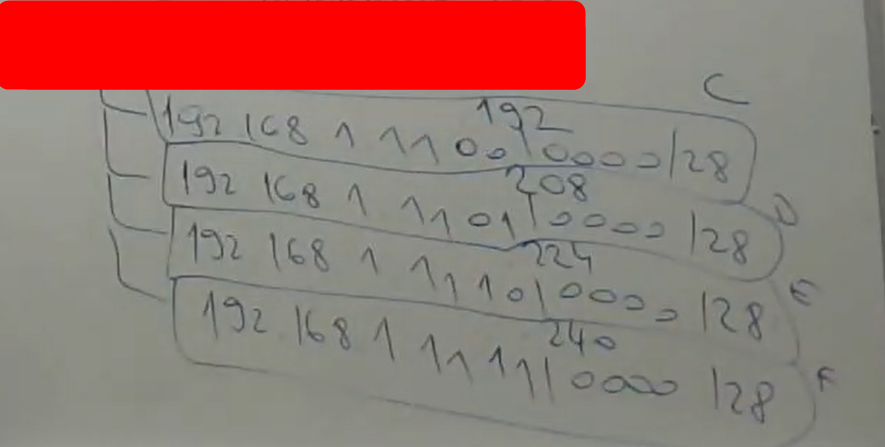 C
192
192 168 1 1100|0000/28
208
192 168 1 1101|0000 /28 D
224
192 168 1 1110|0000 /28 E
240
192 168 1 1111|0000 /28 F